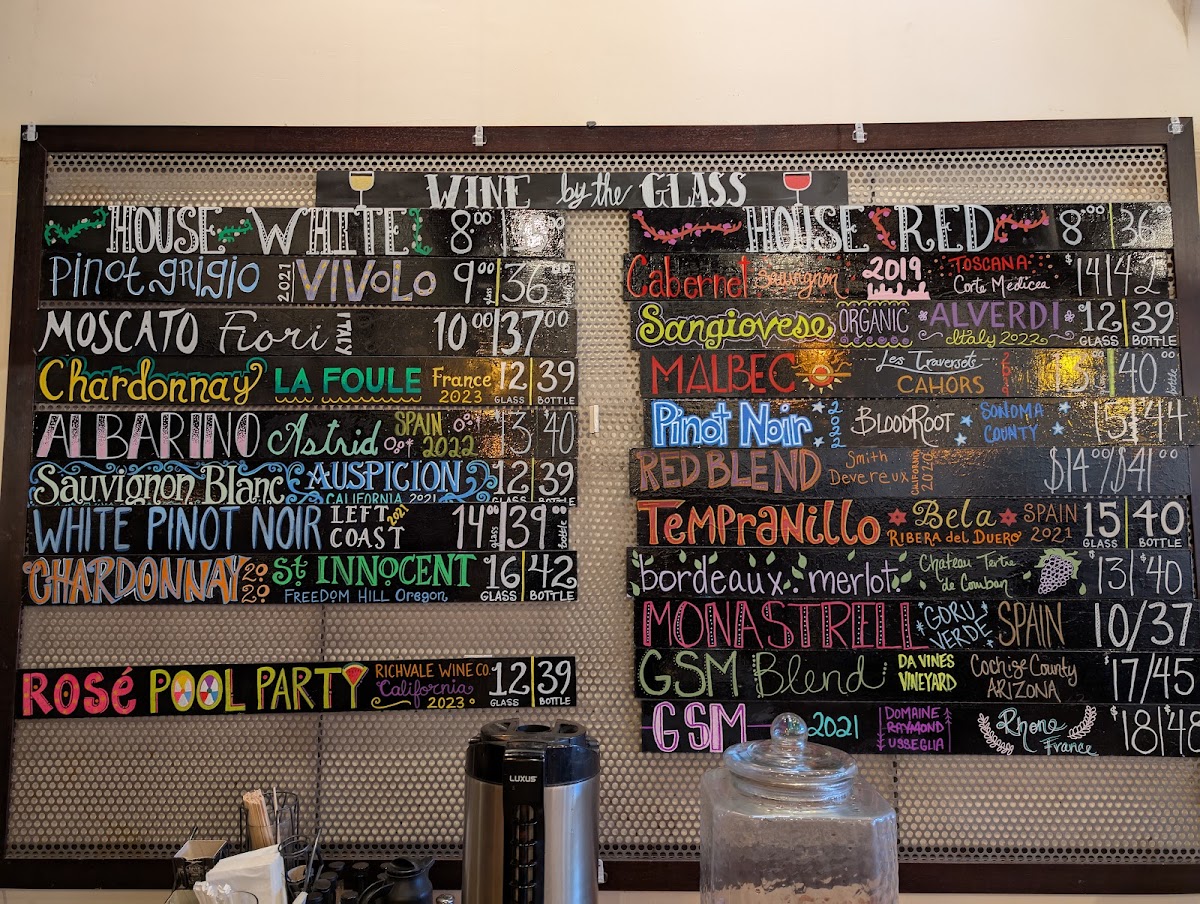 WINE by the GLASS
HOUSE WHITE 8.00
Pinot grigio 2021 VIVOLO 9.00 glass 36.00
MOSCATO Fiori ITALY 10.00 37.00
Chardonnay LA FOULE France 2023 12 GLASS 39 BOTTLE
ALBARINO Astrid SPAIN 2022 13 40
Sauvignon Blanc AUSPICION CALIFORNIA 2021 12 GLASS 39 BOTTLE
WHITE PINOT NOIR LEFT COAST 2021 14.00 glass 39.00 bottle
CHARDONNAY 2020 St INNOCENT FREEDOM HILL Oregon 16 GLASS 42 BOTTLE
Rosé POOL PARTY RICHVALE WINE CO. California 2023 12 GLASS 39 BOTTLE
HOUSE RED 8.00 36
Cabernet Sauvignon 2019 TOSCANA Corte Medicea $14 42
Sangiovese ORGANIC ALVERDI Italy 2022 12 GLASS 39 BOTTLE
MALBEC Les Traversets CAHORS 40 bottle
Pinot Noir BLOODROOT SONOMA COUNTY 15 44
RED BLEND Smith Devereux CALIFORNIA 2020 $14.00/$41.00
TEMPRANILLO Bela RIBERA del DUERO SPAIN 2021 15 GLASS 40 BOTTLE
bordeaux merlot Chateau Tertre de Couban $13/$40
MONASTRELL GORU VERDE SPAIN 10/37
GSM Blend DA VINES VINEYARD Cochise County ARIZONA $17/45
GSM 2021 DOMAINE RAYMOND USSEGLIA Rhone France $18/$48
LUXUS